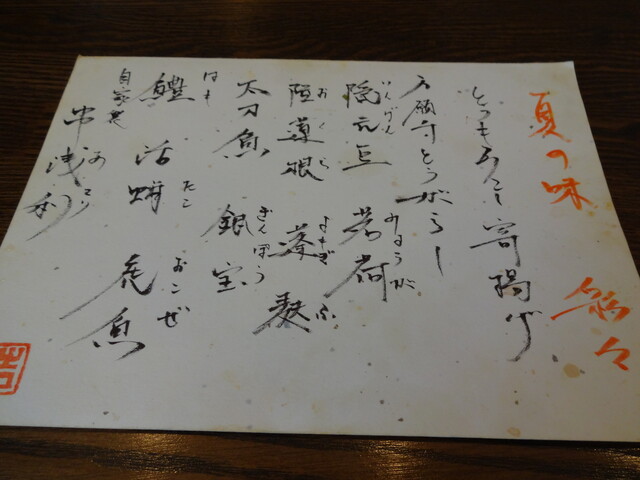 夏の味
とうもろこし寄揚げ
万願寺とうがらし
隠元豆 いんげん 茗荷 みょうが
陸蓮根 おくら 蓬麩 よもぎ ふ
太刀魚 銀宝 ぎんぽう
鱧 はも 活蛸 たこ 虎魚 おこぜ
自家製
串浅利 あさり